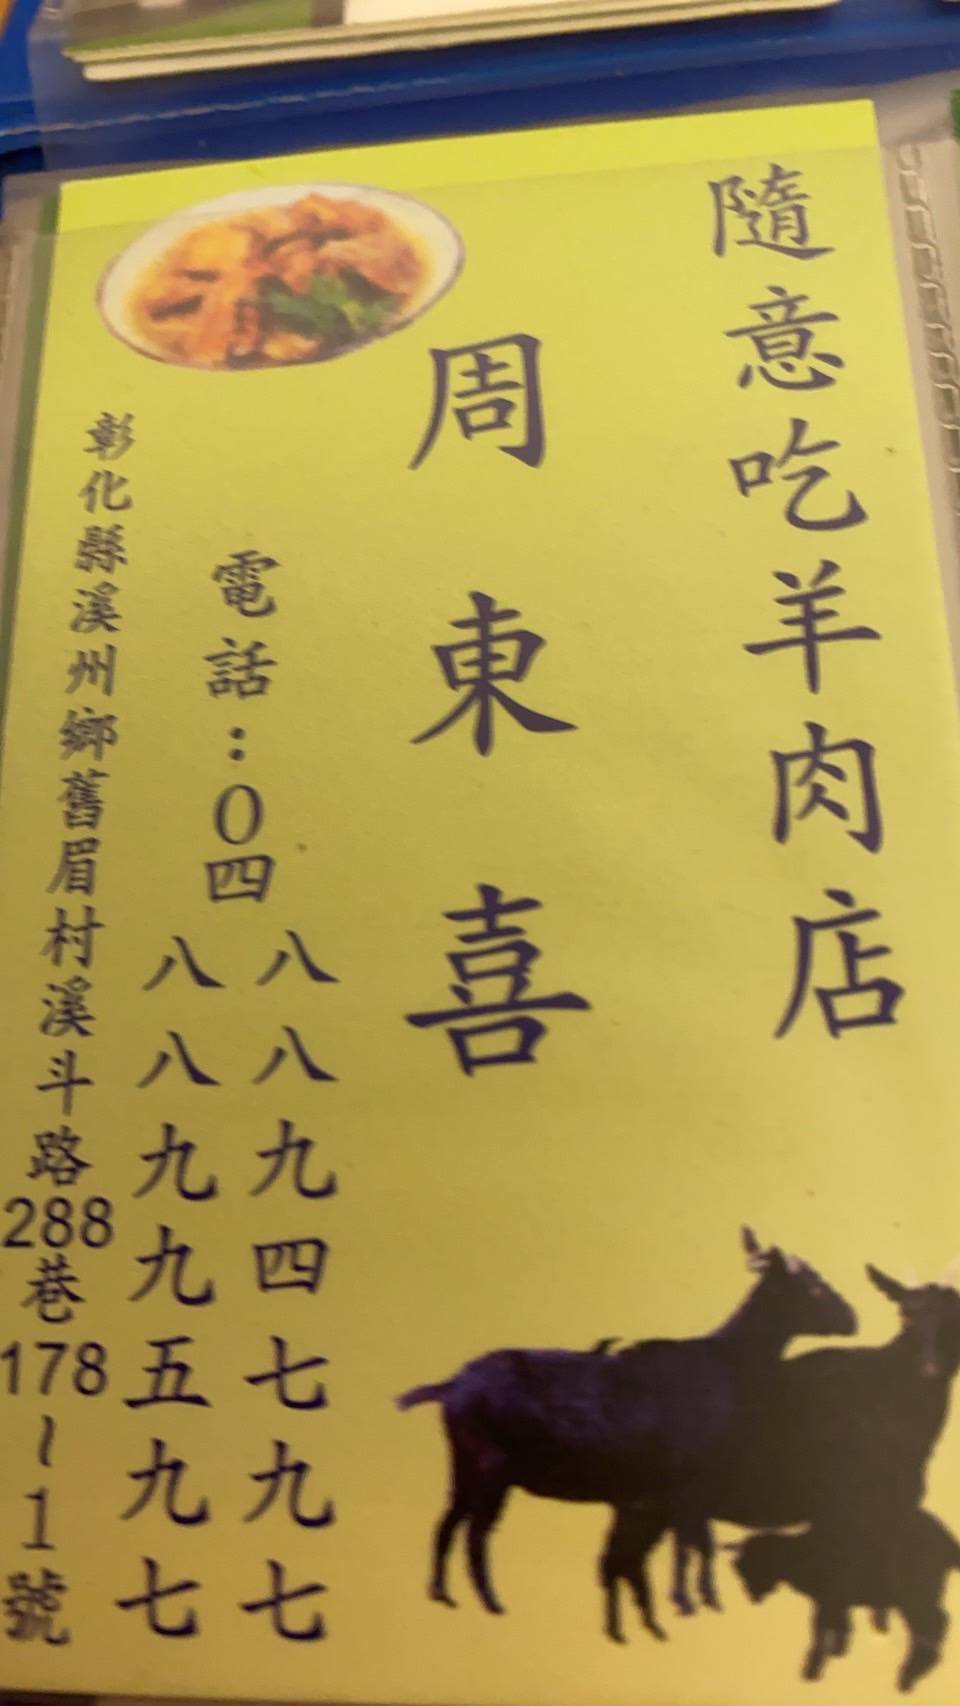 隨意吃羊肉店
周東喜
電話:0四
八八九四七九七
八八九九五九七
彰化縣溪州鄉舊眉村溪斗路288巷178~1號